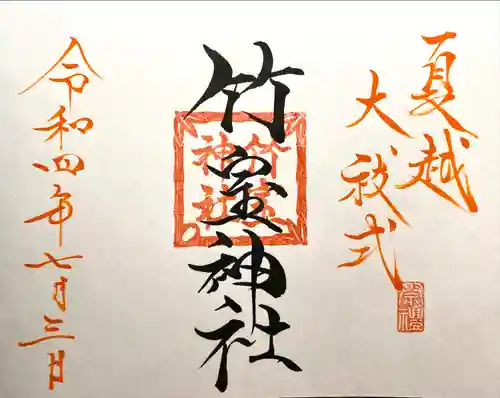 夏越
大祓式
竹室神社
竹室
神社
令和四年七月三日